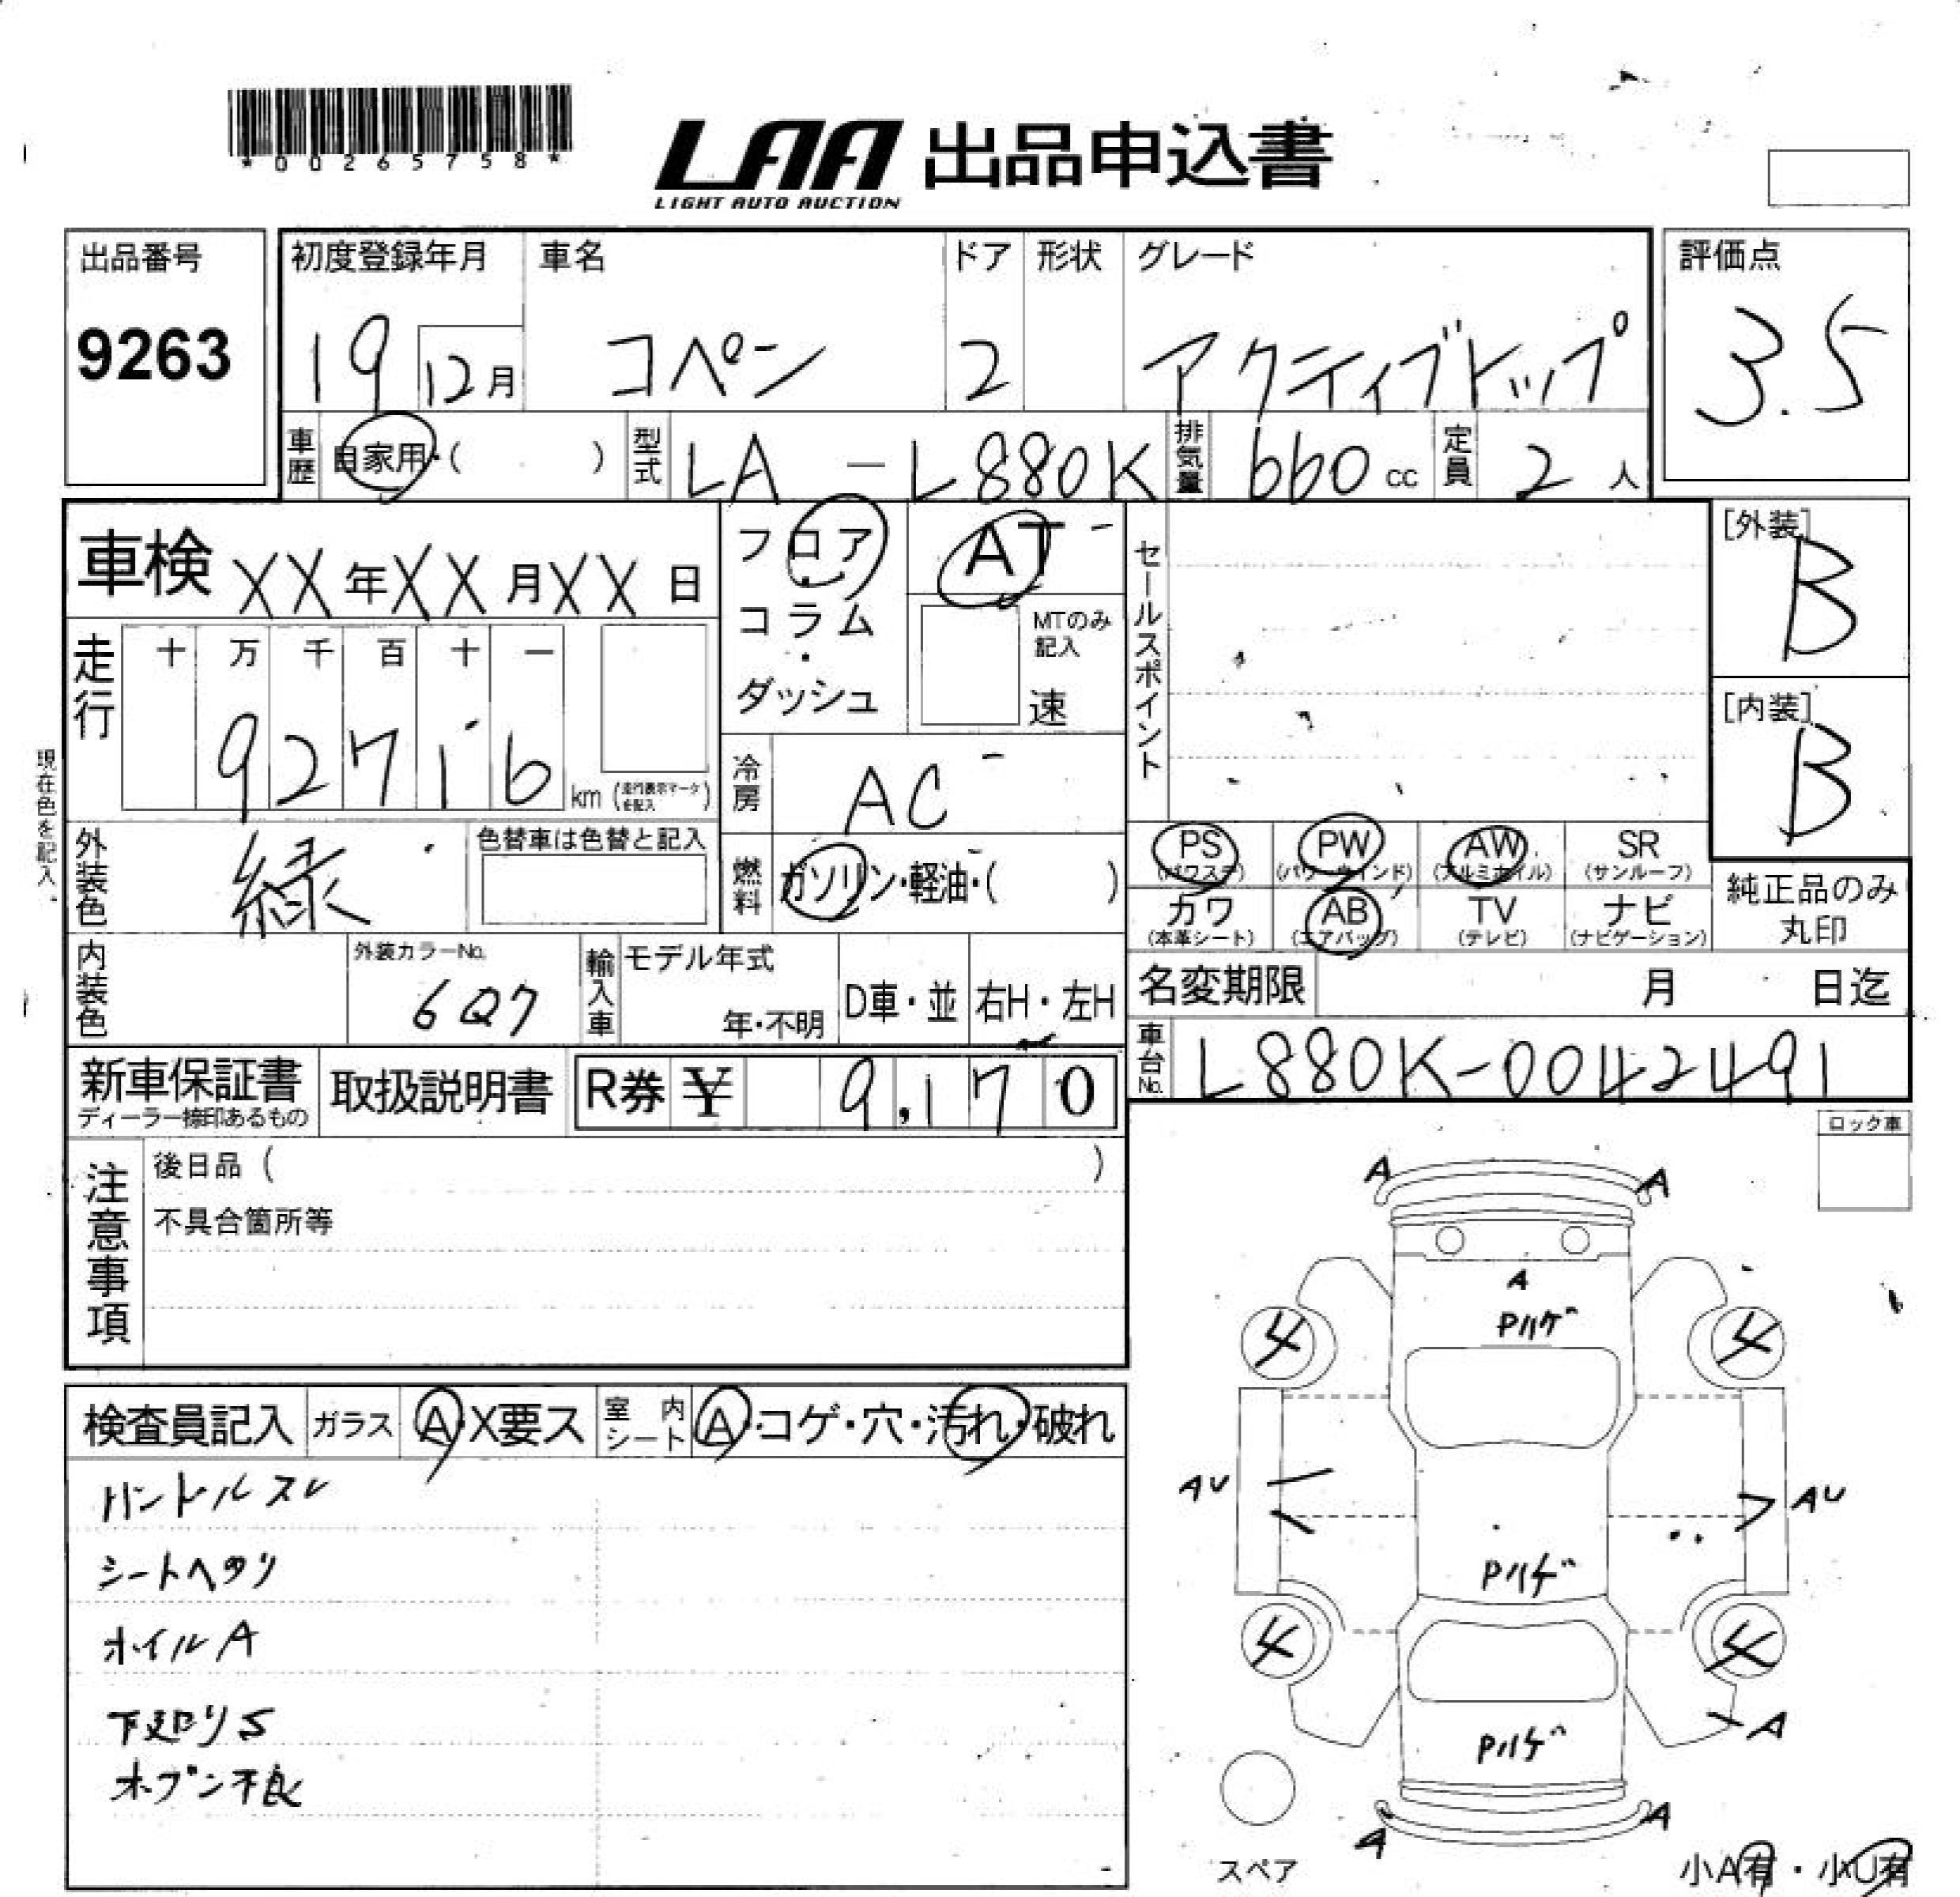 *00265758*
LAA 出品申込書
LIGHT AUTO AUCTION
出品番号
9263
初度登録年月 車名 ドア 形状 グレード
19 12月 コペン 2 アクティブトップ
評価点
3.5
車歴 自家用・( ) 型式 LA-L880K 排気量 660cc 定員 2人
車検 XX年XX月XX日
フロア・コラム・ダッシュ
AT
MTのみ記入
速
セールスポイント
[外装]
B
[内装]
B
走行 十万千百十一
92716 km (走行表示マークを記入)
現在色を記入。
冷房 AC
外装色 緑 色替車は色替と記入
燃料 ガソリン・軽油・( )
PS (パワステ) PW (パワーウインド) AW (アルミホイル) SR (サンルーフ)
カワ (本革シート) AB (エアバッグ) TV (テレビ) ナビ (ナビゲーション)
純正品のみ丸印
内装色 外装カラーNo. 6Q7
輸入車 モデル年式 年・不明 D車・並 右H・左H
名変期限 月 日迄
車台No. L880K-0042491
新車保証書 ディーラー捺印あるもの
取扱説明書
R券 ¥ 9,170
ロック車
注意事項
後日品 ( )
不具合箇所等
検査員記入 ガラス A・X要ス 室内シート A・コゲ・穴・汚れ・破れ
ハンドルスレ
シートヘタリ
ホイルA
下廻りS
オープン不良
A A
A
Pハゲ
4 4
AU AU
Pハゲ
4 4
Pハゲ
A
A A
スペア
小A有・小U有